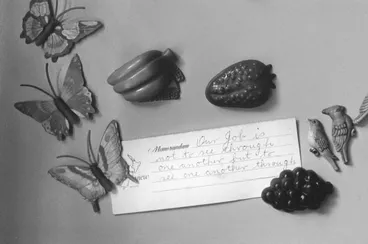 Memorandum Our Job is
not to see through
one another but to
see one another through